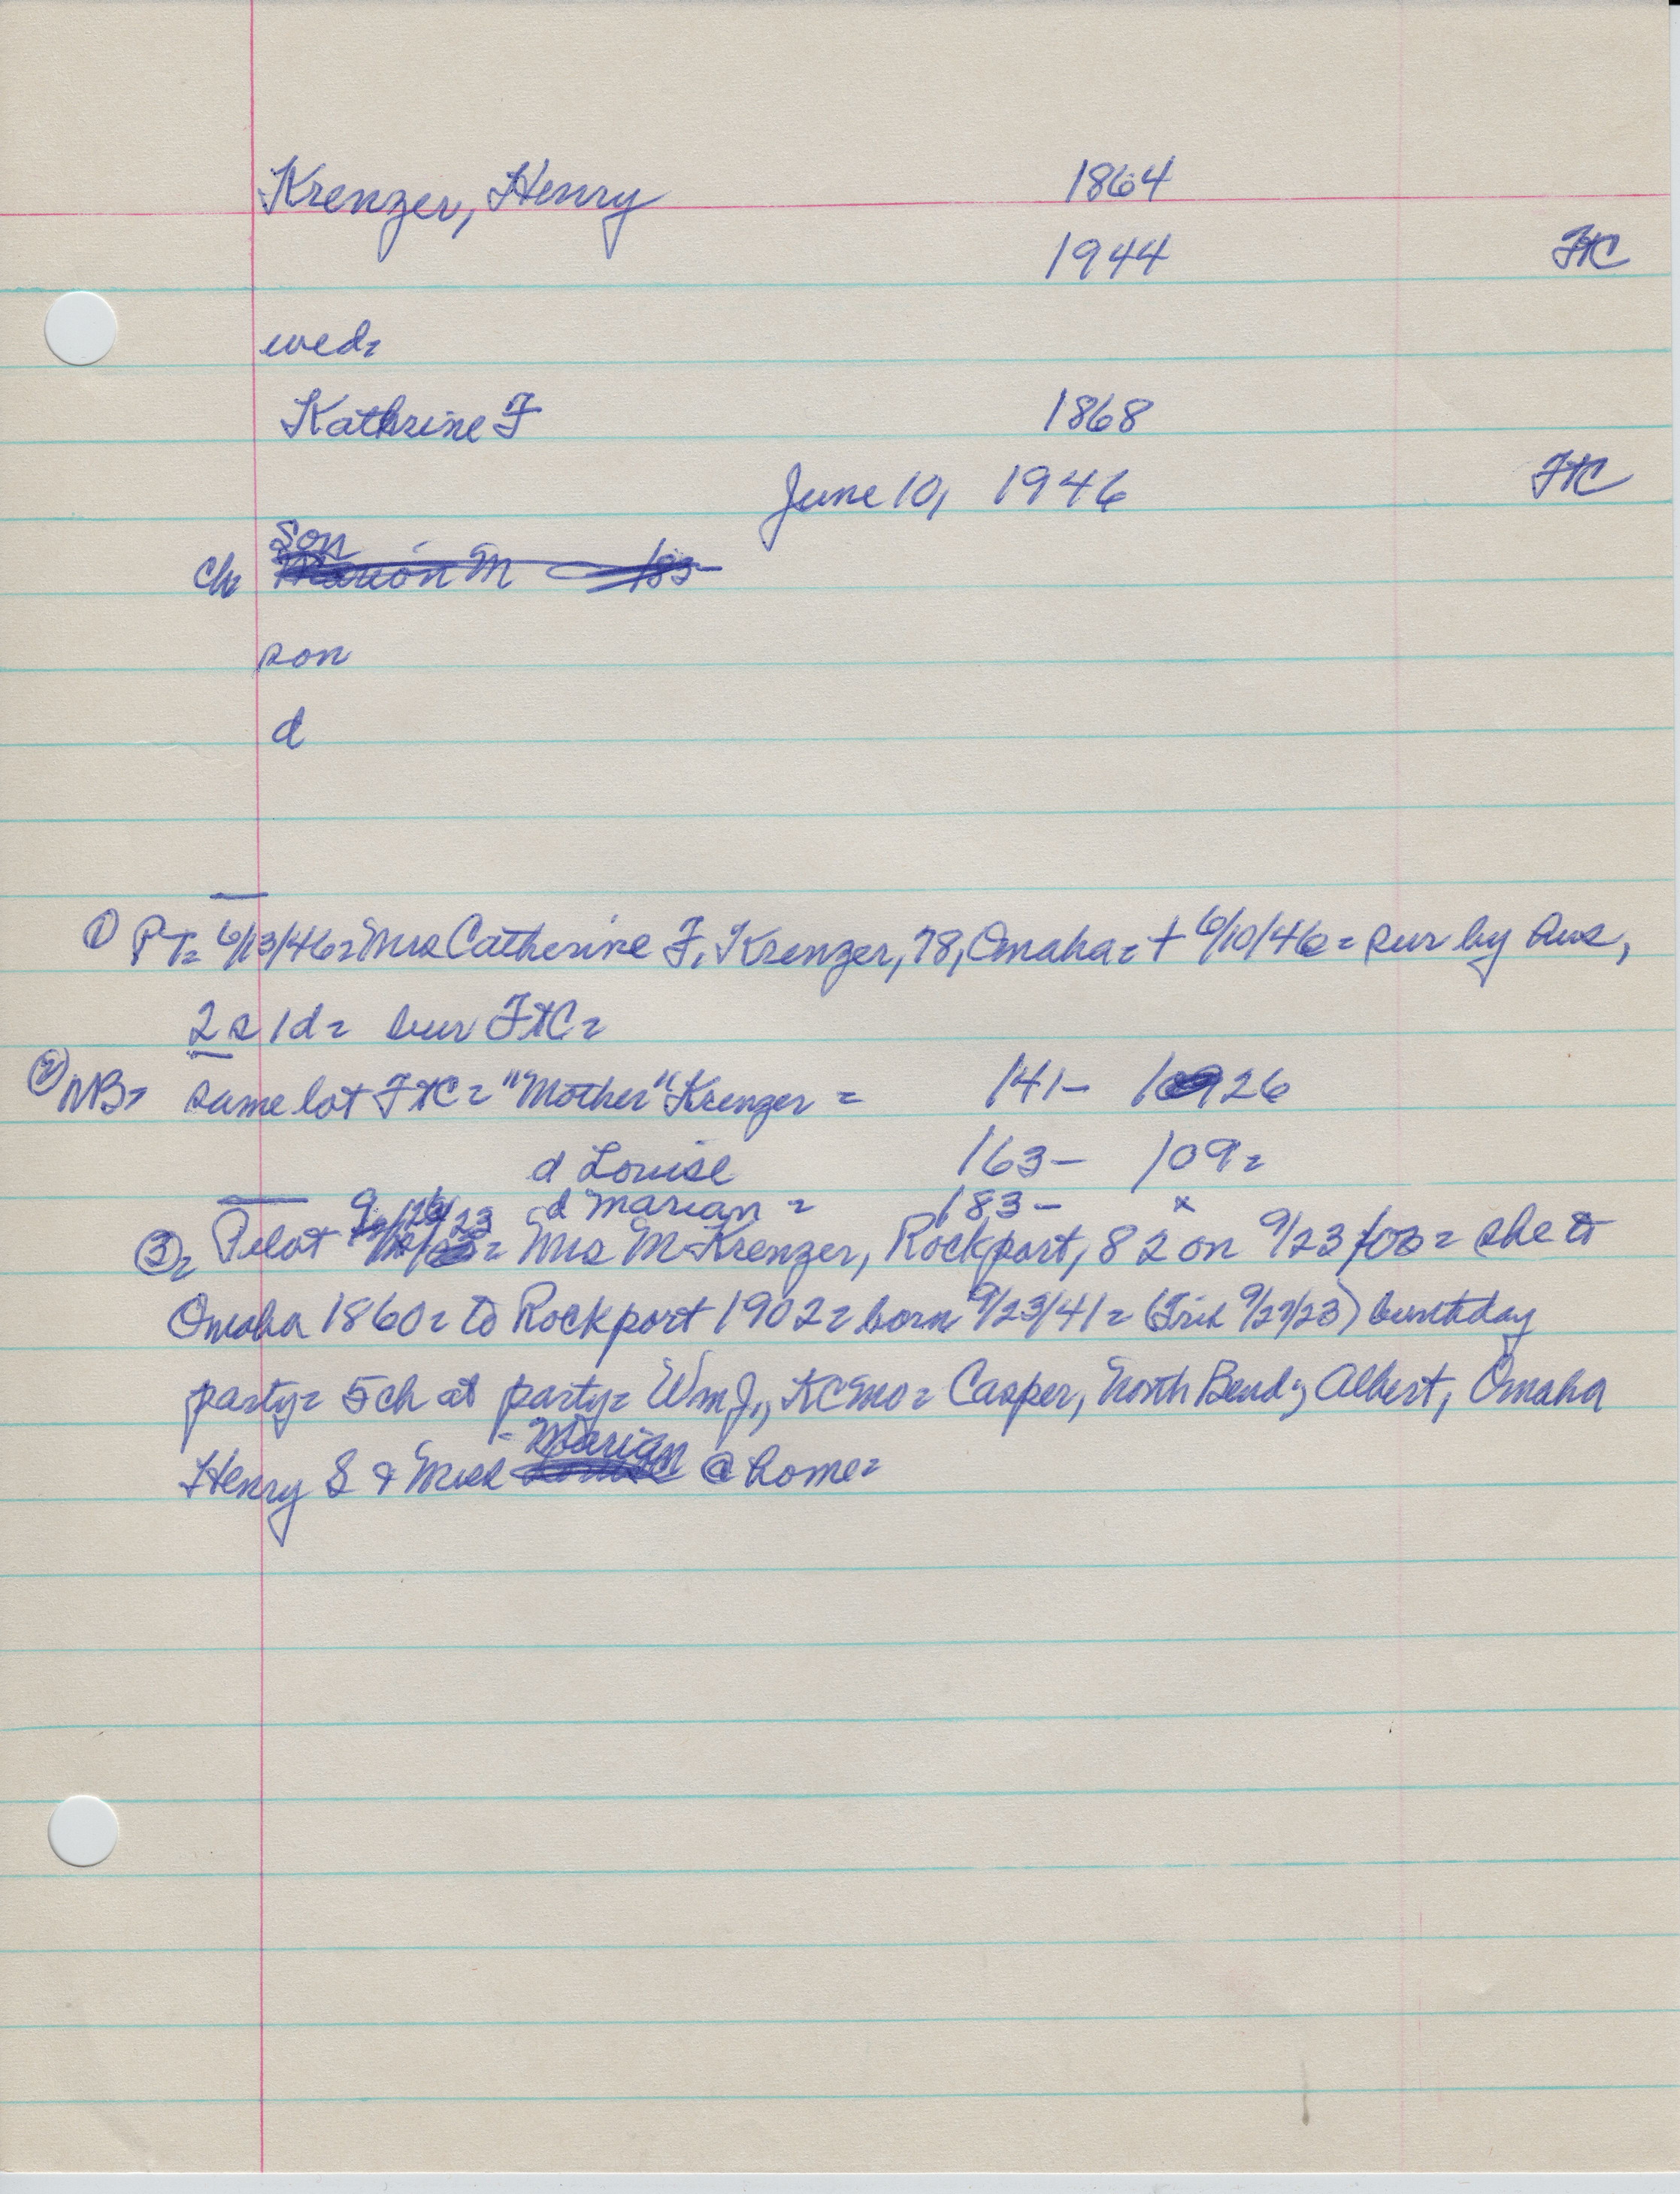 Krenzer, Henry 1864
1944 FtC
wed=
Kathrine F 1868
June 10, 1946 FtC
Son
Ch Marion M 183-
son
d
① PT= 6/13/46= Mrs Catherine F. Krenzer, 78, Omaha= + 6/10/46= sur by hus,
2 s 1d= bur FtC=
② NB= same lot FtC= "Mother" Krenzer = 141- 1926
d Louise 163- 109=
d Marian = 183- x
③= Pilot 9/26/23 = Mrs M Krenzer, Rockport, 82 on 9/23 = she to
Omaha 1860= to Rockport 1902= born 9/23/41= (Trib 9/27/23) birthday
party= 5ch at party= Wm J., KCMo= Casper, North Bend; Albert, Omaha
Henry S & Miss Marian @ home=